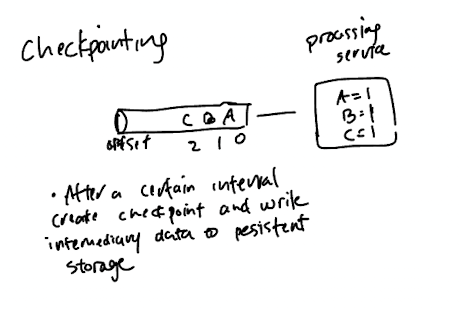 Checkpointing
processing
service
C B A
offset 2 1 0
A=1
B=1
C=1
• After a certain interval
create checkpoint and write
intermediary data to pesistent
storage